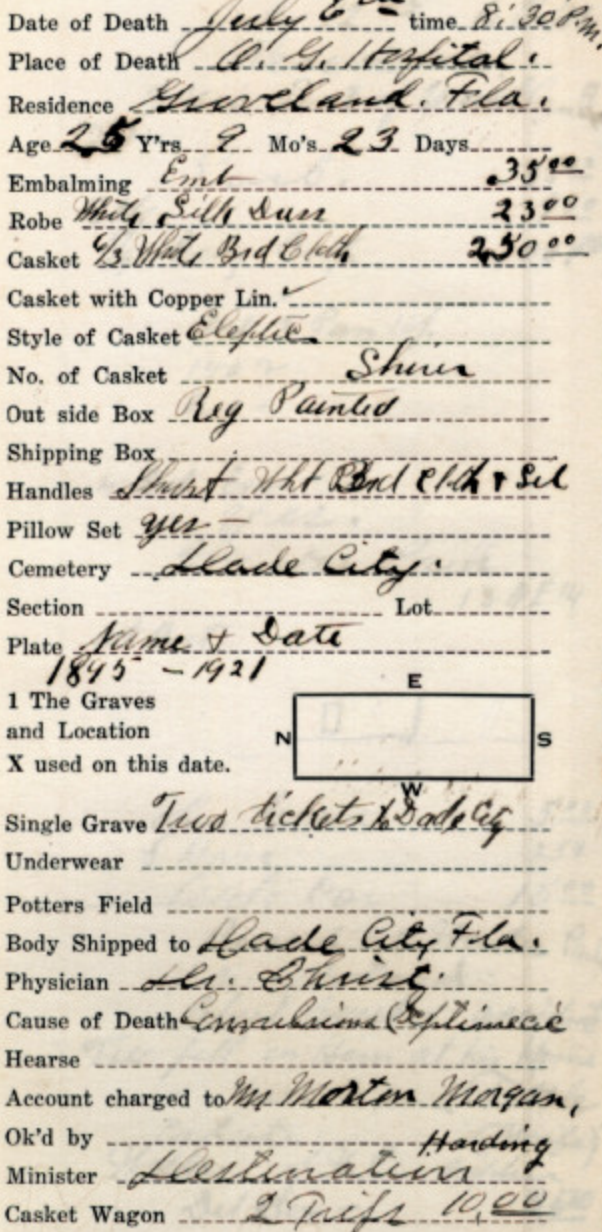 Date of Death July 6th time 8:30 P.M.
Place of Death O. G. Hospital.
Residence Groveland. Fla.
Age 25 Y'rs 9 Mo's 23 Days
Embalming Emb 35 00
Robe White Silk Dress 23 00
Casket 6/3 White Brd Cloth 250 00
Casket with Copper Lin. ✓
Style of Casket Eleptic
No. of Casket
Out side Box Reg Painted
Shipping Box
Handles Wht Brd Cloth & Sil
Pillow Set yes –
Cemetery Dade City.
Section Lot
Plate Name & Date
1895 – 1921
E
1 The Graves
and Location
X used on this date.
N S
W
Single Grave Two tickets to Dade City
Underwear
Potters Field
Body Shipped to Dade City Fla.
Physician Dr. Christ.
Cause of Death Convulsions
Hearse
Account charged to Mr Morton Morgan,
Ok'd by Harding
Minister Destination
Casket Wagon 2 Trips 10.00